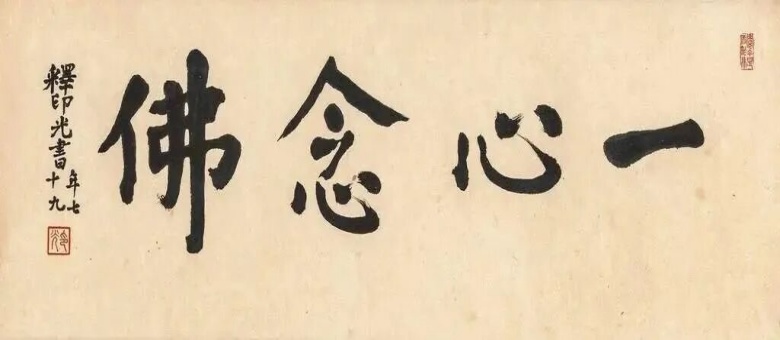 一心念佛
釋印光書
年七
十九